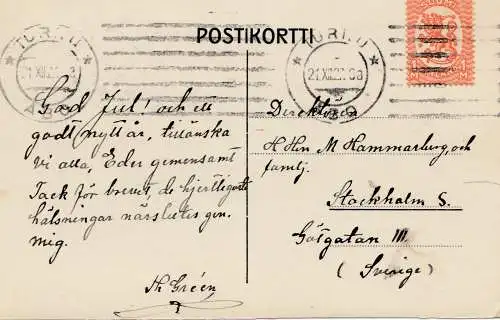 POSTIKORTTI
TURKU
21.XII.
ÅBO
TURKU
21.XII.
ÅBO
SUOMI
God Jul! och ett
godt nytt år, tillönska
vi alla, Eder gemensamt
Tack för brevet, de hjertligaste
hälsningar närslutes gm.
mig.
Th Gréen
Direktören
H Hrn M Hammarberg, och
familj.
Stockholm S.
Götgatan
(Sverige)